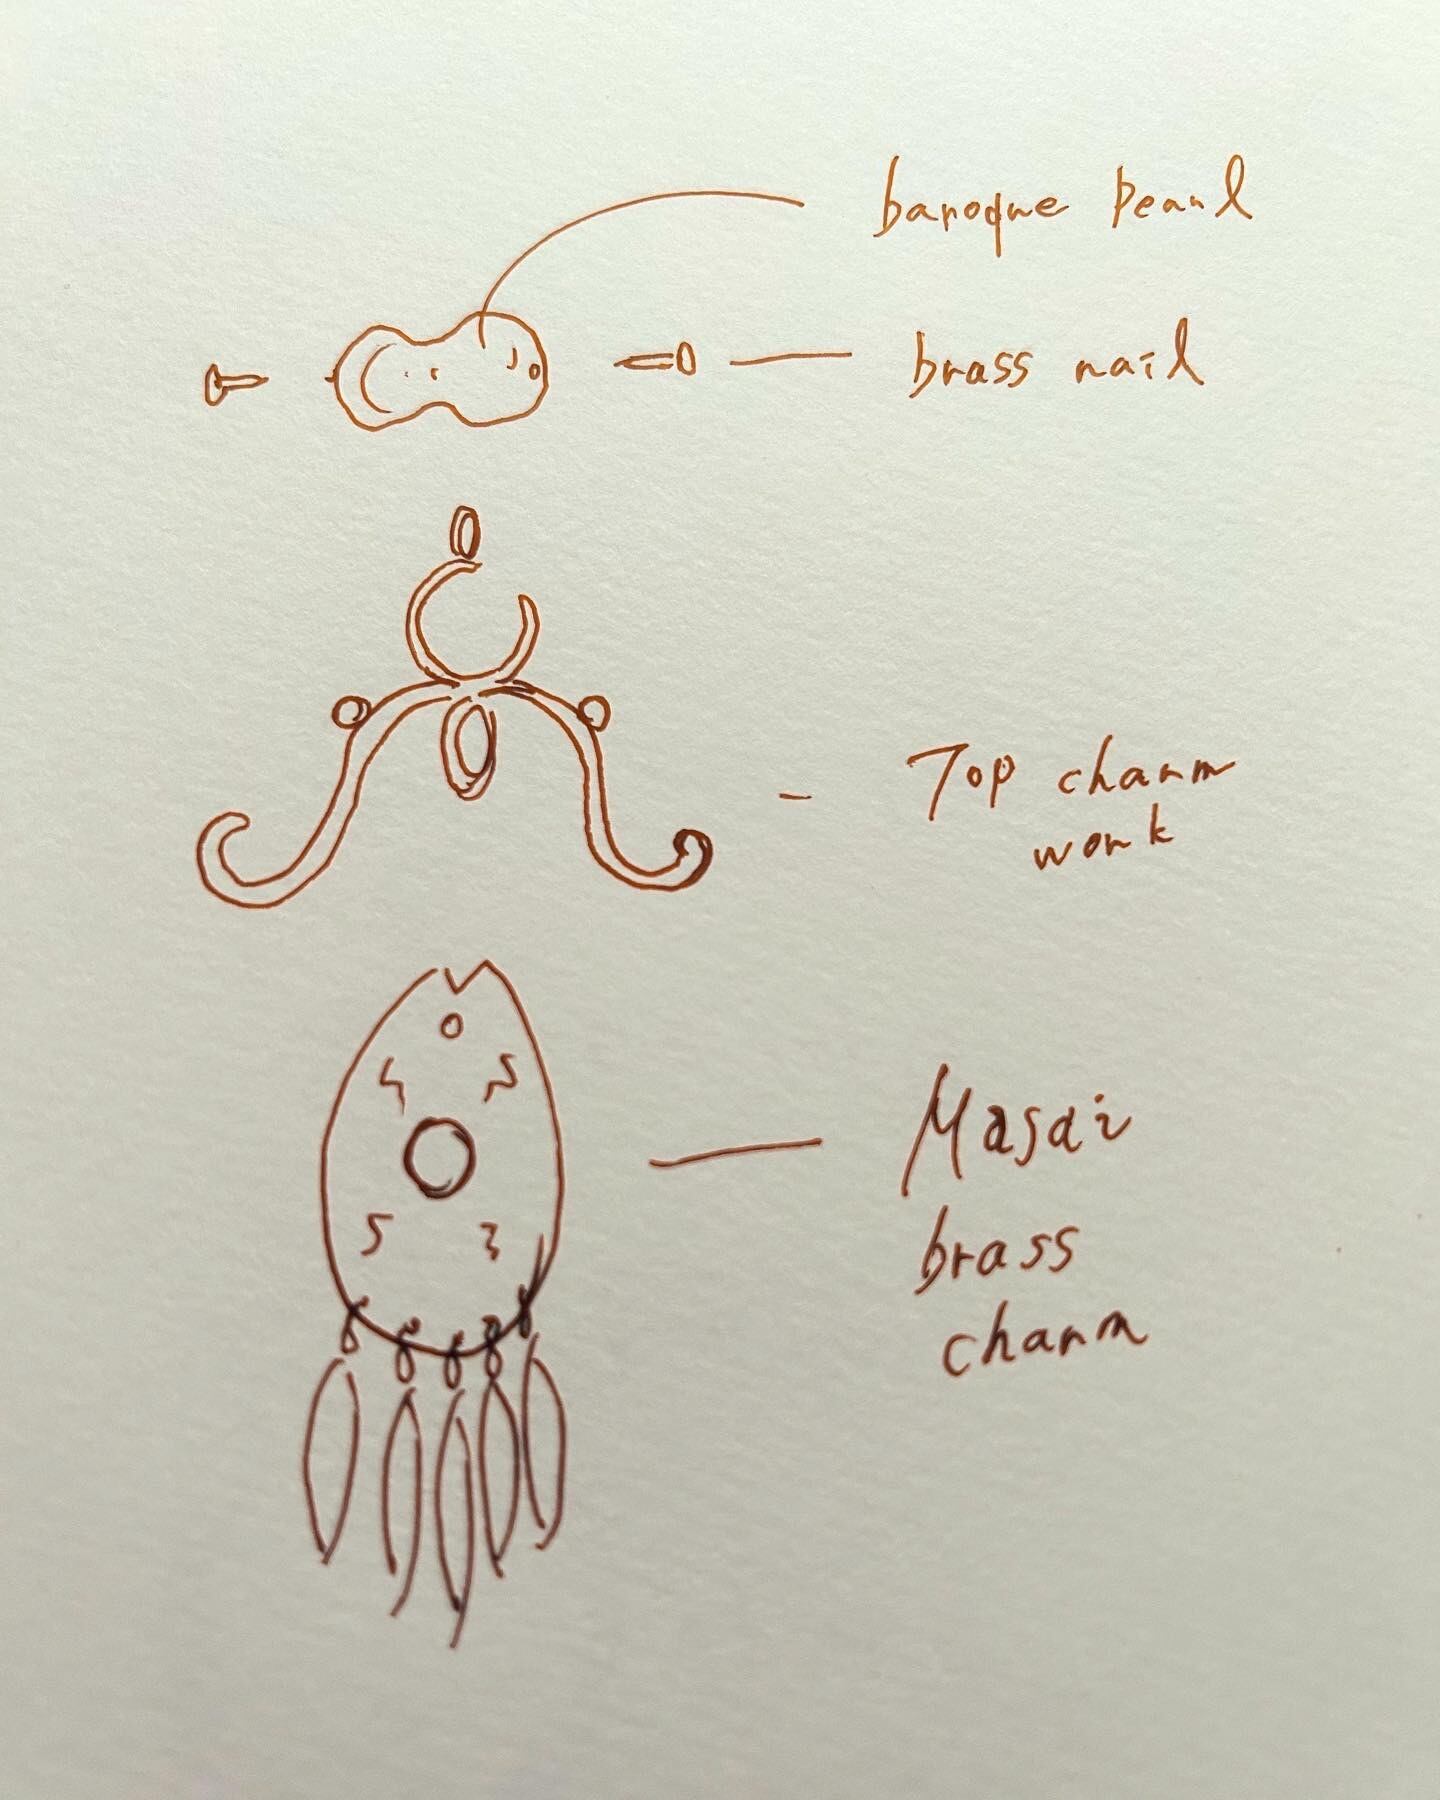 baroque pearl
brass nail
Top charm
work
Masai
brass
charm